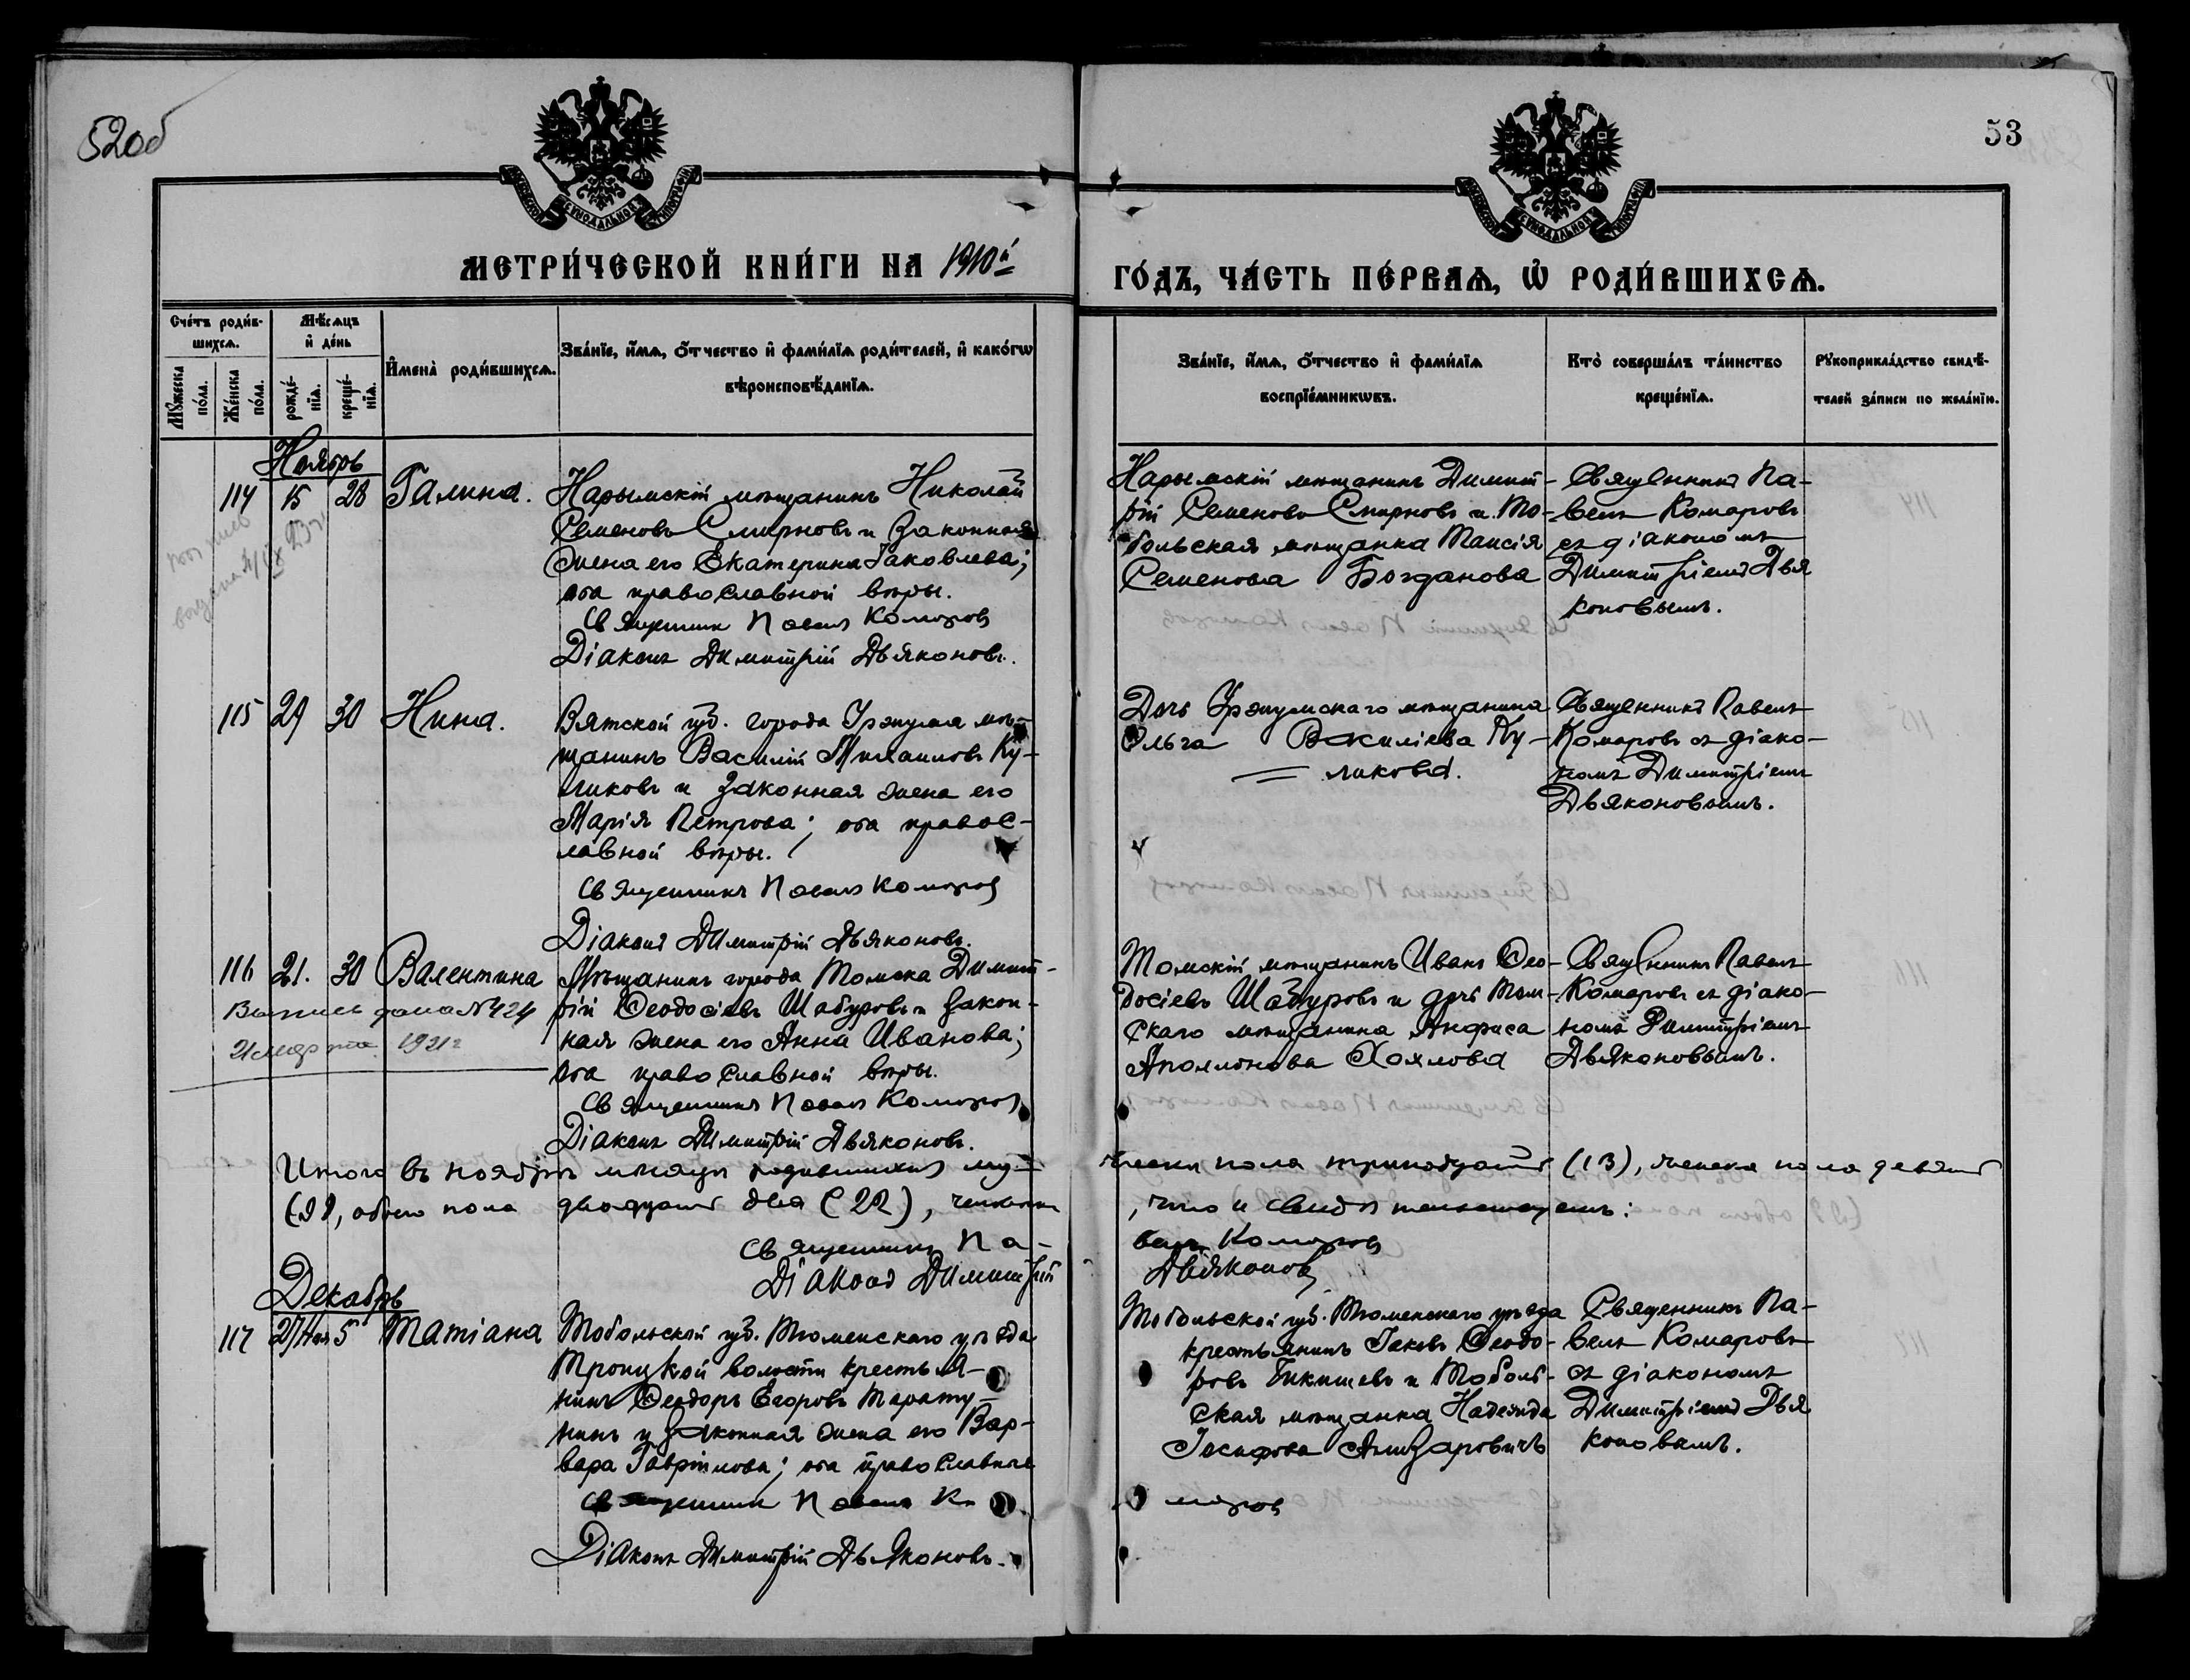 52об
53
МЕТРИ́ЧЕСКОЙ КНИ́ГИ НА 1910й
ГО́ДЪ, ЧА́СТЬ ПЕ́РВАѦ, Ѡ҆ РОДИ́ВШИХСѦ.
Сче́тъ роди́в-
шихсѧ.
Мѣ́сѧцъ
и҆ де́нь
Мꙋ́жеска
по́ла.
Же́нска
по́ла.
рожде́-
нїѧ.
креще́-
нїѧ.
И҆мена̀ роди́вшихсѧ.
Зва́нїе, и҆́мѧ, ѻ҆́тчество и҆ фами́лїѧ роди́телей, и҆ како́гѡ
вѣроисповѣ́данїѧ.
Зва́нїе, и҆́мѧ, ѻ҆́тчество и҆ фами́лїѧ
воспрїе́мникѡвъ.
Кто̀ соверша́лъ та́инство
креще́нїѧ.
Рꙋкоприкла́дство свидѣ́-
телей за́писи по жела́нїю.
Ноябрь
114 15 28 Галина.
Нарымскій мѣщанинъ Николай
Семеновъ Смирновъ и законная
жена его Екатерина Іаковлева;
оба православной вѣры.
Священникъ Павелъ Комаровъ
Діаконъ Димитрій Дьяконовъ.
Нарымскій мѣщанинъ Димит-
рій Семеновъ Смирновъ и То-
больская мѣщанка Таисія
Семенова Богданова
Священникъ Па-
велъ Комаровъ
съ діакономъ
Димитріемъ Дья
коновымъ.
115 29 30 Нина.
Вятской губ. города Уржума мѣ-
щанинъ Василій Михаиловъ Ку-
ликовъ и законная жена его
Марія Петрова; оба правос-
лавной вѣры.
Священникъ Павелъ Комаровъ
Діаконъ Димитрій Дьяконовъ.
Дочь Уржумскаго мѣщанина
Ольга Василіева Ку-
ликова.
Священникъ Павелъ
Комаровъ съ діако-
номъ Димитріемъ
Дьяконовымъ.
116 21. 30 Валентина
Выпись дана № 424
21 марта 1921 г
Мѣщанинъ города Томска Димит-
рій Ѳеодосіевъ Шабуровъ и закон-
ная жена его Анна Иванова;
оба православной вѣры.
Священникъ Павелъ Комаровъ
Діаконъ Димитрій Дьяконовъ.
Томскій мѣщанинъ Иванъ Ѳео-
досіевъ Шабуровъ и дочь Том-
скаго мѣщанина Анфиса
Аполлонова Хохлова
Священникъ Павелъ
Комаровъ съ діако-
номъ Димитріемъ
Дьяконовымъ.
Итого въ ноябрѣ мѣсяцѣ родившихся му-
жеска пола тринадцать (13), женска пола девять
(9), обоего пола двадцать два (22),
, что и свидѣтельствуемъ:
Священникъ Па-
велъ Комаровъ
Діаконъ Димитрій
Дьяконовъ
Декабрь
117 27 Ноя 5 Татіана
Тобольской губ. Тюменскаго уѣзда
Троицкой волости крестья-
нинъ Ѳеодоръ Егоровъ
нинъ и законная жена его Вар-
вара Гавріилова; оба православные
Священникъ Павелъ Ко
маровъ
Діаконъ Димитрій Дьяконовъ.
Тобольской губ. Тюменскаго уѣзда
крестьянинъ Іаковъ Ѳеодо-
ровъ и Тоболь-
ская мѣщанка Надежда
Іосифова
Священникъ Па-
велъ Комаровъ
съ діакономъ
Димитріемъ Дья
коновымъ.